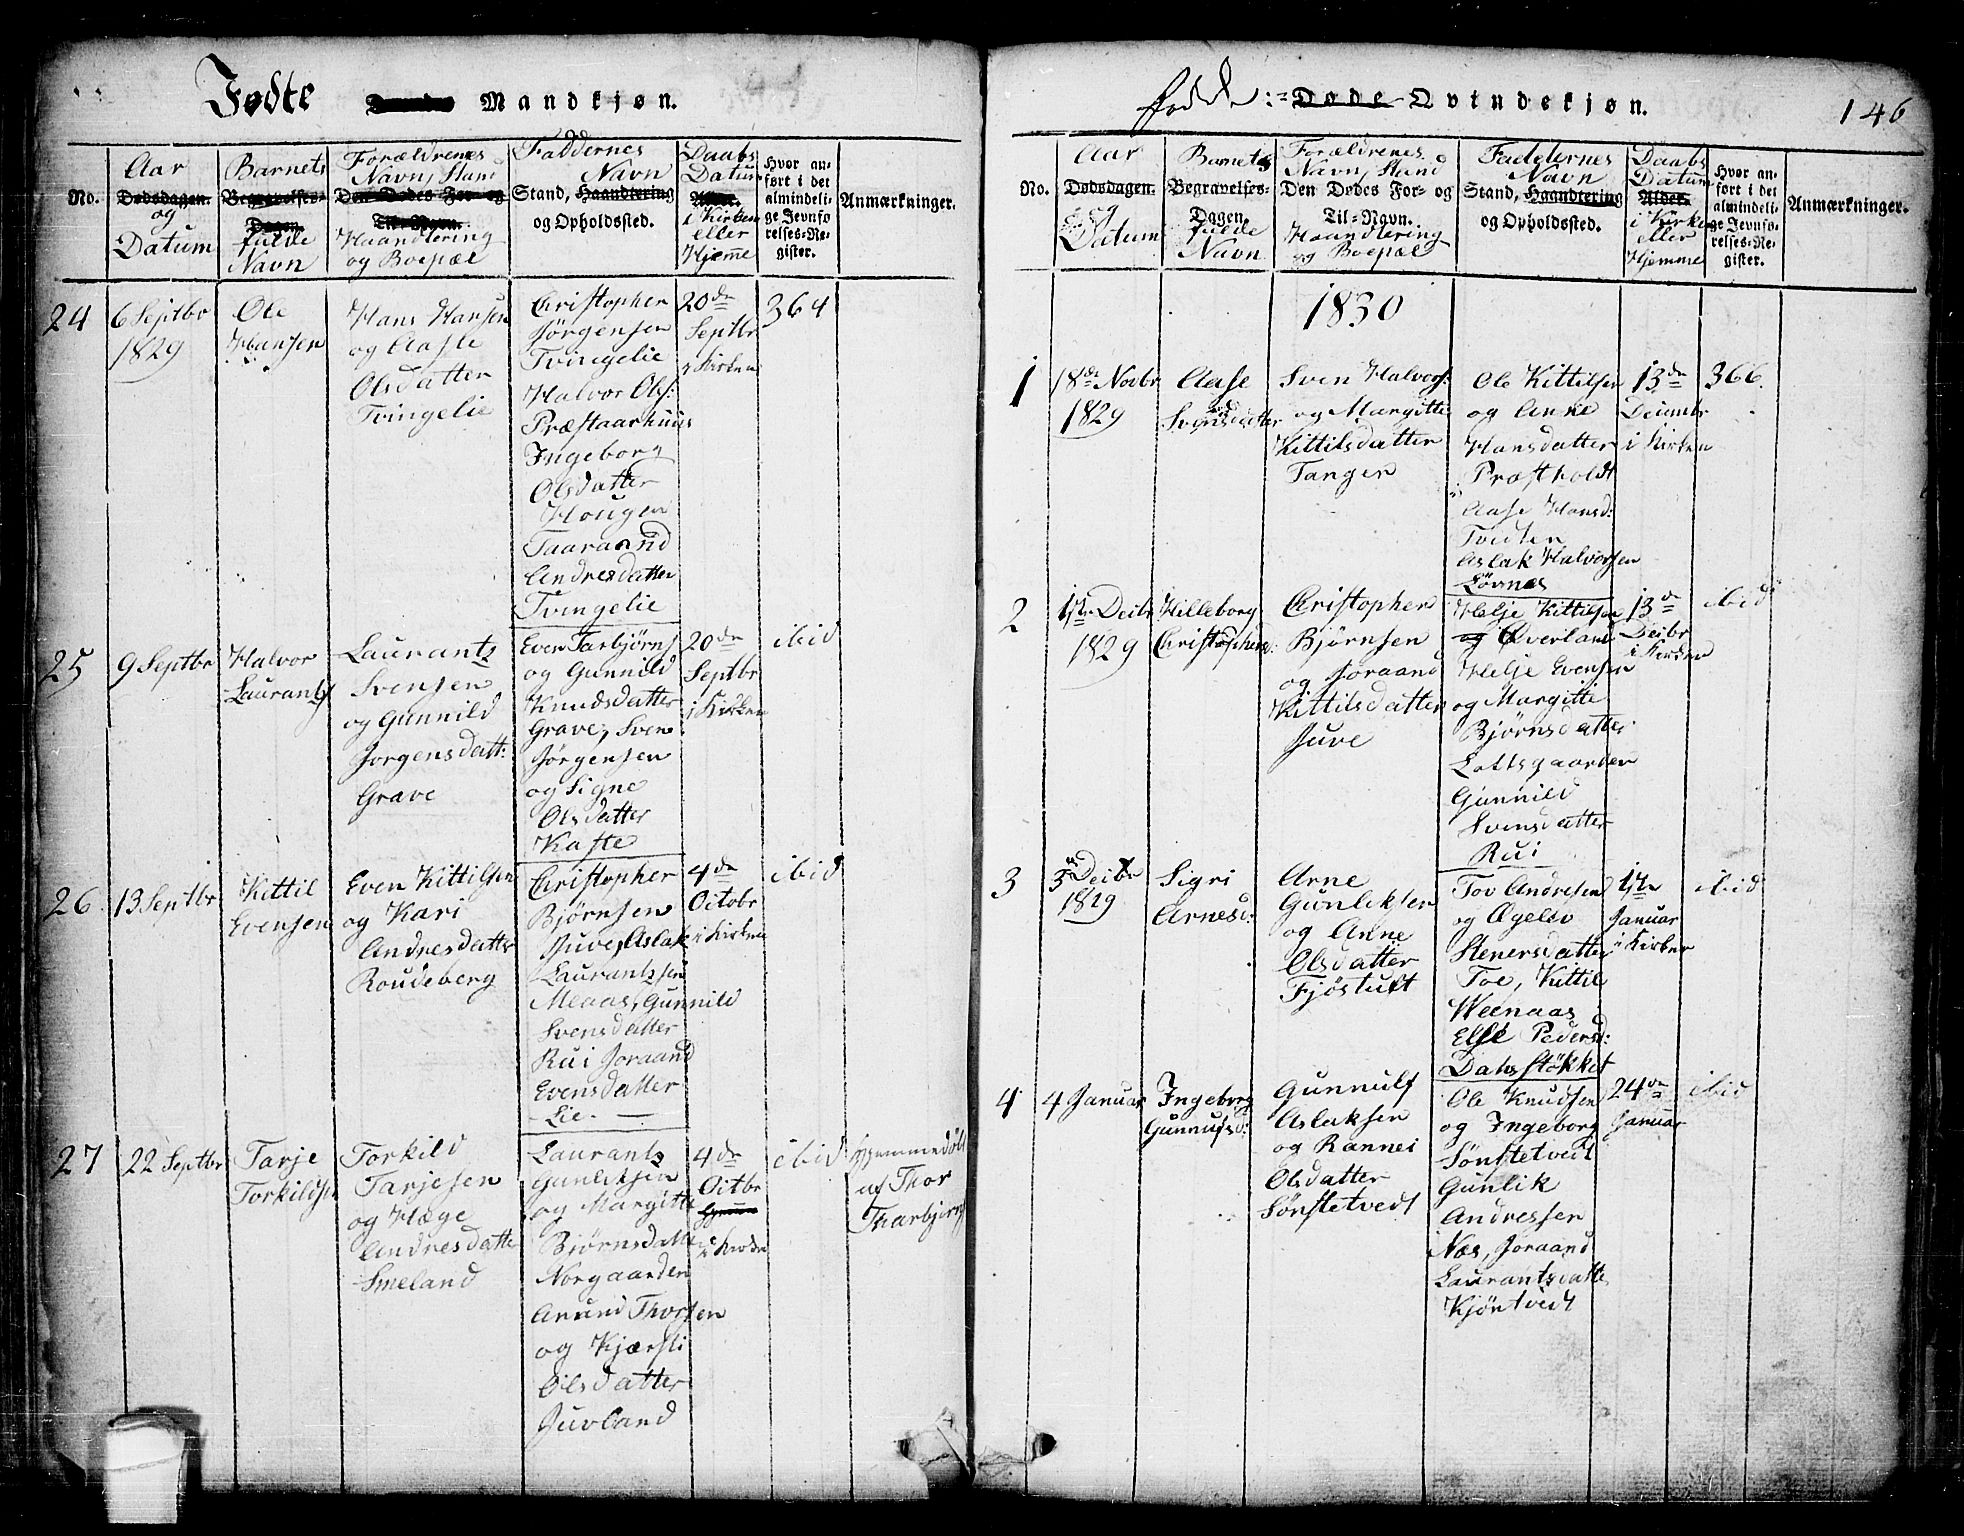 Fødte Mandkjøn.
No.
Aar
Dødsdagen.
og
Datum
Barnets
Begravelses-
Dagen.
fulde
Navn
Forældrenes
Navn, Stand
Den Dødes For- og
Til-Navn.
Haandtering
og Boepæl
Faddernes
Navn
Stand, Haandtering
og Opholdssted.
Daabs
Datum
Alder.
i Kirken
eller
Hjemme
Hvor an-
ført i det
almindeli-
ge Jevnfø-
relses-Re-
gister.
Anmærkninger.
24
6 Septbr
1829
Ole
Hansen
Hans Hansen
og Aaste
Olsdatter
Tvingelie
Christopher
Jørgensen
Tvingelie
Halvor Ols:
Præstaarhuus
Ingeborg
Olsdatter
Hougen
Taaraand
Andresdatter
Tvingelie
20de
Septbr
i Kirken
364
25
9 Septbr
Halvor
Laurants
Laurants
Svensen
og Gunnild
Jorgensdatt:
Grave
Even Tarbjørns
og Gunnild
Knudsdatter
Grave, Sven
Jørgensen
og Signe
Olsdatter
Kaste
20de
Septbr
i Kirken
ibid
26.
13 Septbr
Kittil
Evensen
Even Kittilsen
og Kari
Andresdatter
Roudeberg
Christopher
Bjørnsen
Juve, Aslak
Laurantssen
Meaas, Gunnild
Svensdatter
Rui Joraand
Evensdatter
Lie.
4de
Octobr
i Kirken
ibid
27
22 Septbr
Tarje
Torkilds
Torkild
Tarjesen
og Hæge
Andresdatte
Smeland
Laurants
Gunleksen
og Margitte
Bjørnsdatte
Norgaarden
Anund Thorsen
og Kjærsti
Olsdatter
Juvland
4de
Octbr
Hjemme
i Kirken
ibid
Hjemmedøbt
af Thor
Tharbjørns
Fødde:= Døde Qvindekjøn.
146
No.
Aar
Dødsdagen.
og
Datum
Barnets
Begravelses-
Dagen.
fulde
Navn
Forældrenes
Navn, Stand
Den Dødes For- og
Til-Navn.
Haandtering
og Boepæl
Faddernes
Navn
Stand, Haandtering
og Opholdssted.
Daabs
Datum
Alder.
i Kirke
eller
Hjemme
Hvor an-
ført i det
almindeli-
ge Jevnfø-
relses-Re-
gister.
Anmærkninger.
1830
1
18de Novbr
1829
Aase
Svensdatter
Sven Halvors:
og Margitte
Kittilsdatter
Tangen
Ole Kittilsen
og Anne
Hansdatter
Præstholdt
Aase Hansd:
Tvedten
Aslak Halvorsen
Løvnes
13de
Decembr
i Kirken
366.
2
1ste Decbr
1829
Hilleborg
Christophers:
Christopher
Bjørnsen
og Joraand
Kittilsdatter
Juve
Helje Kittilsen
og Øverland
Helje Evensen
og Margitte
Bjørnsdatter
Loftsgaarden
Gunnild
Svensdatter
Rui
13de
Decbr
i Kirken
ibid
3
5te Decbr
1829
Sigri
Arnesd:
Arne
Gunleksen
og Anne
Olsdatter
Fjøstuft
Tov Andresen
og Øgelév
Stenersdatter
Toe, Kittil
Weenaas
Else Pedersd:
Dahsstøkket
1ste
Januar
i Kirken
ibid
4
4 Januar
Ingeborg
Gunnulfsd:
Gunnulf
Aslaksen
og Rannei
Olsdatter
Sønstetvedt
Ole Knudsen
og Ingeborg
Sønstetvedt
Gunlik
Andressen
Næs, Joraand
Laurantsdatte
Kjøntvedt
24de
Januar
ibid